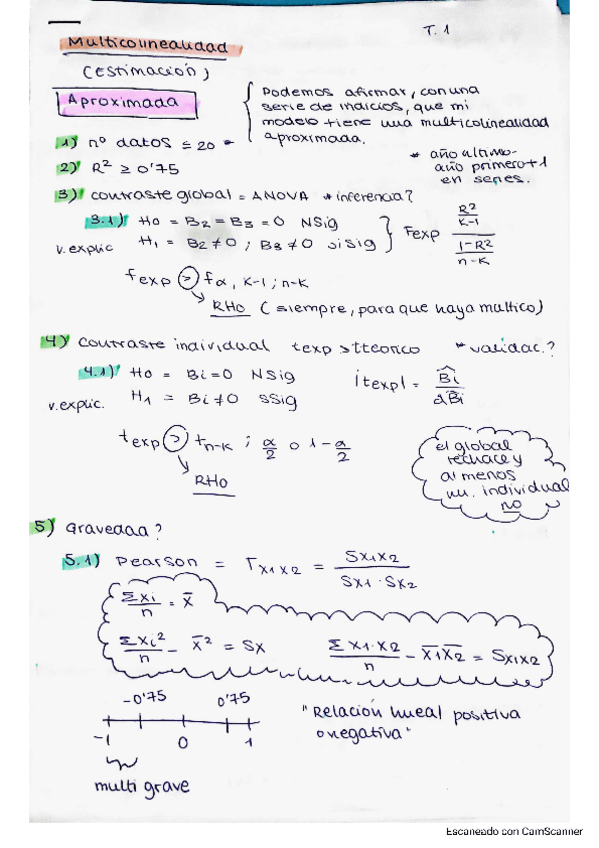 T.1
Multicolinealidad
(estimación)
Aproximada
Podemos afirmar, con una
serie de indicios, que mi
modelo tiene una multicolinealidad
aproximada.
1) nº datos ≤ 20 *
* año último-
año primero+1
en series.
2) R² ≥ 0'75
3) contraste global = ANOVA * inferencia?
3.1) H0 = B2 = B3 = 0 NSig
v. explic H1 = B2 ≠ 0 ; B3 ≠ 0 siSig } Fexp (R²/K-1) / (1-R²/n-K)
fexp > fα, K-1 ; n-K
RH0 (siempre, para que haya multico)
4) contraste individual texp > tteorico * validac.?
4.1) H0 = Bi = 0 NSig
v. explic. H1 = Bi ≠ 0 SSig
|texpl = B̂i / σ̂Bi
texp > tn-K ; α/2 o 1-α/2
RH0
el global
rechace y
al menos
un. individual
no
5) Gravedad?
5.1) Pearson = rx1x2 = Sx1x2 / Sx1 · Sx2
Σxi/n = x̄
Σxi²/n - x̄² = Sx Σx1·x2/n - x̄1x̄2 = Sx1x2
-0'75 0'75
-1 0 1
"Relación lineal positiva
o negativa"
multi grave
Escaneado con CamScanner